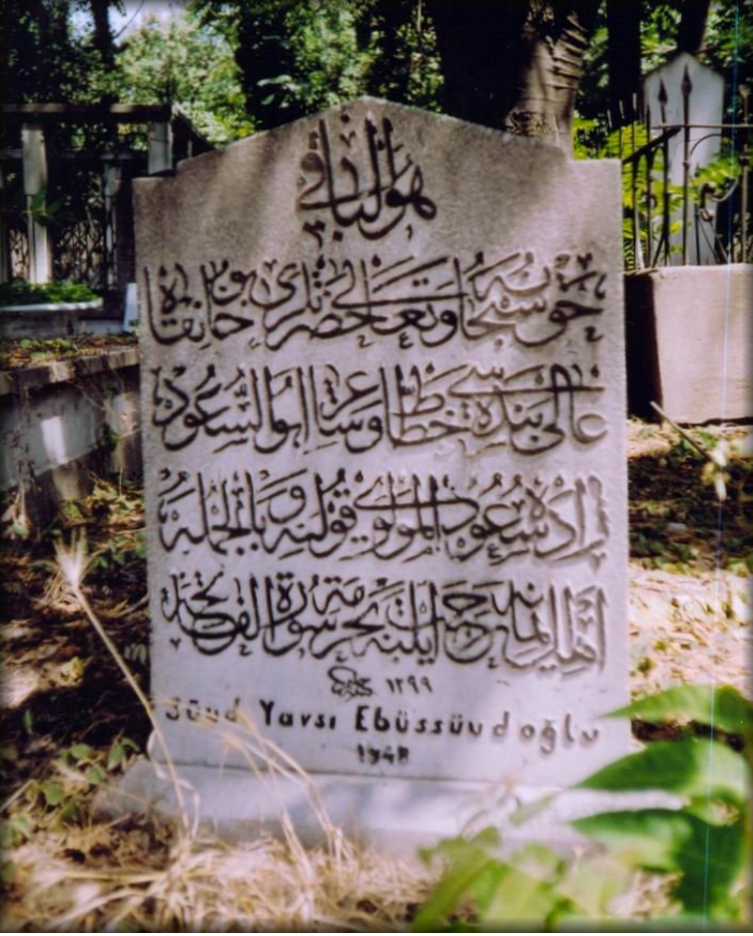 هو الباقى
حق سبحانه وتعالى حضرتلرى بو خانقاه
عالى بنده سى خطاط وشاعر ابو السعود
زاده سعود المولوى قولنه وبالجمله
اهل ايمانه رحمت ايليه بحرمة سورة الفاتحه
١٢٩٩
Süud Yavsı Ebüssüudoğlu
1948